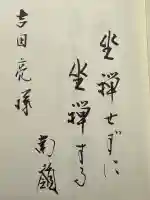 坐禅せずに
坐禅する
南嶺
吉田亮様